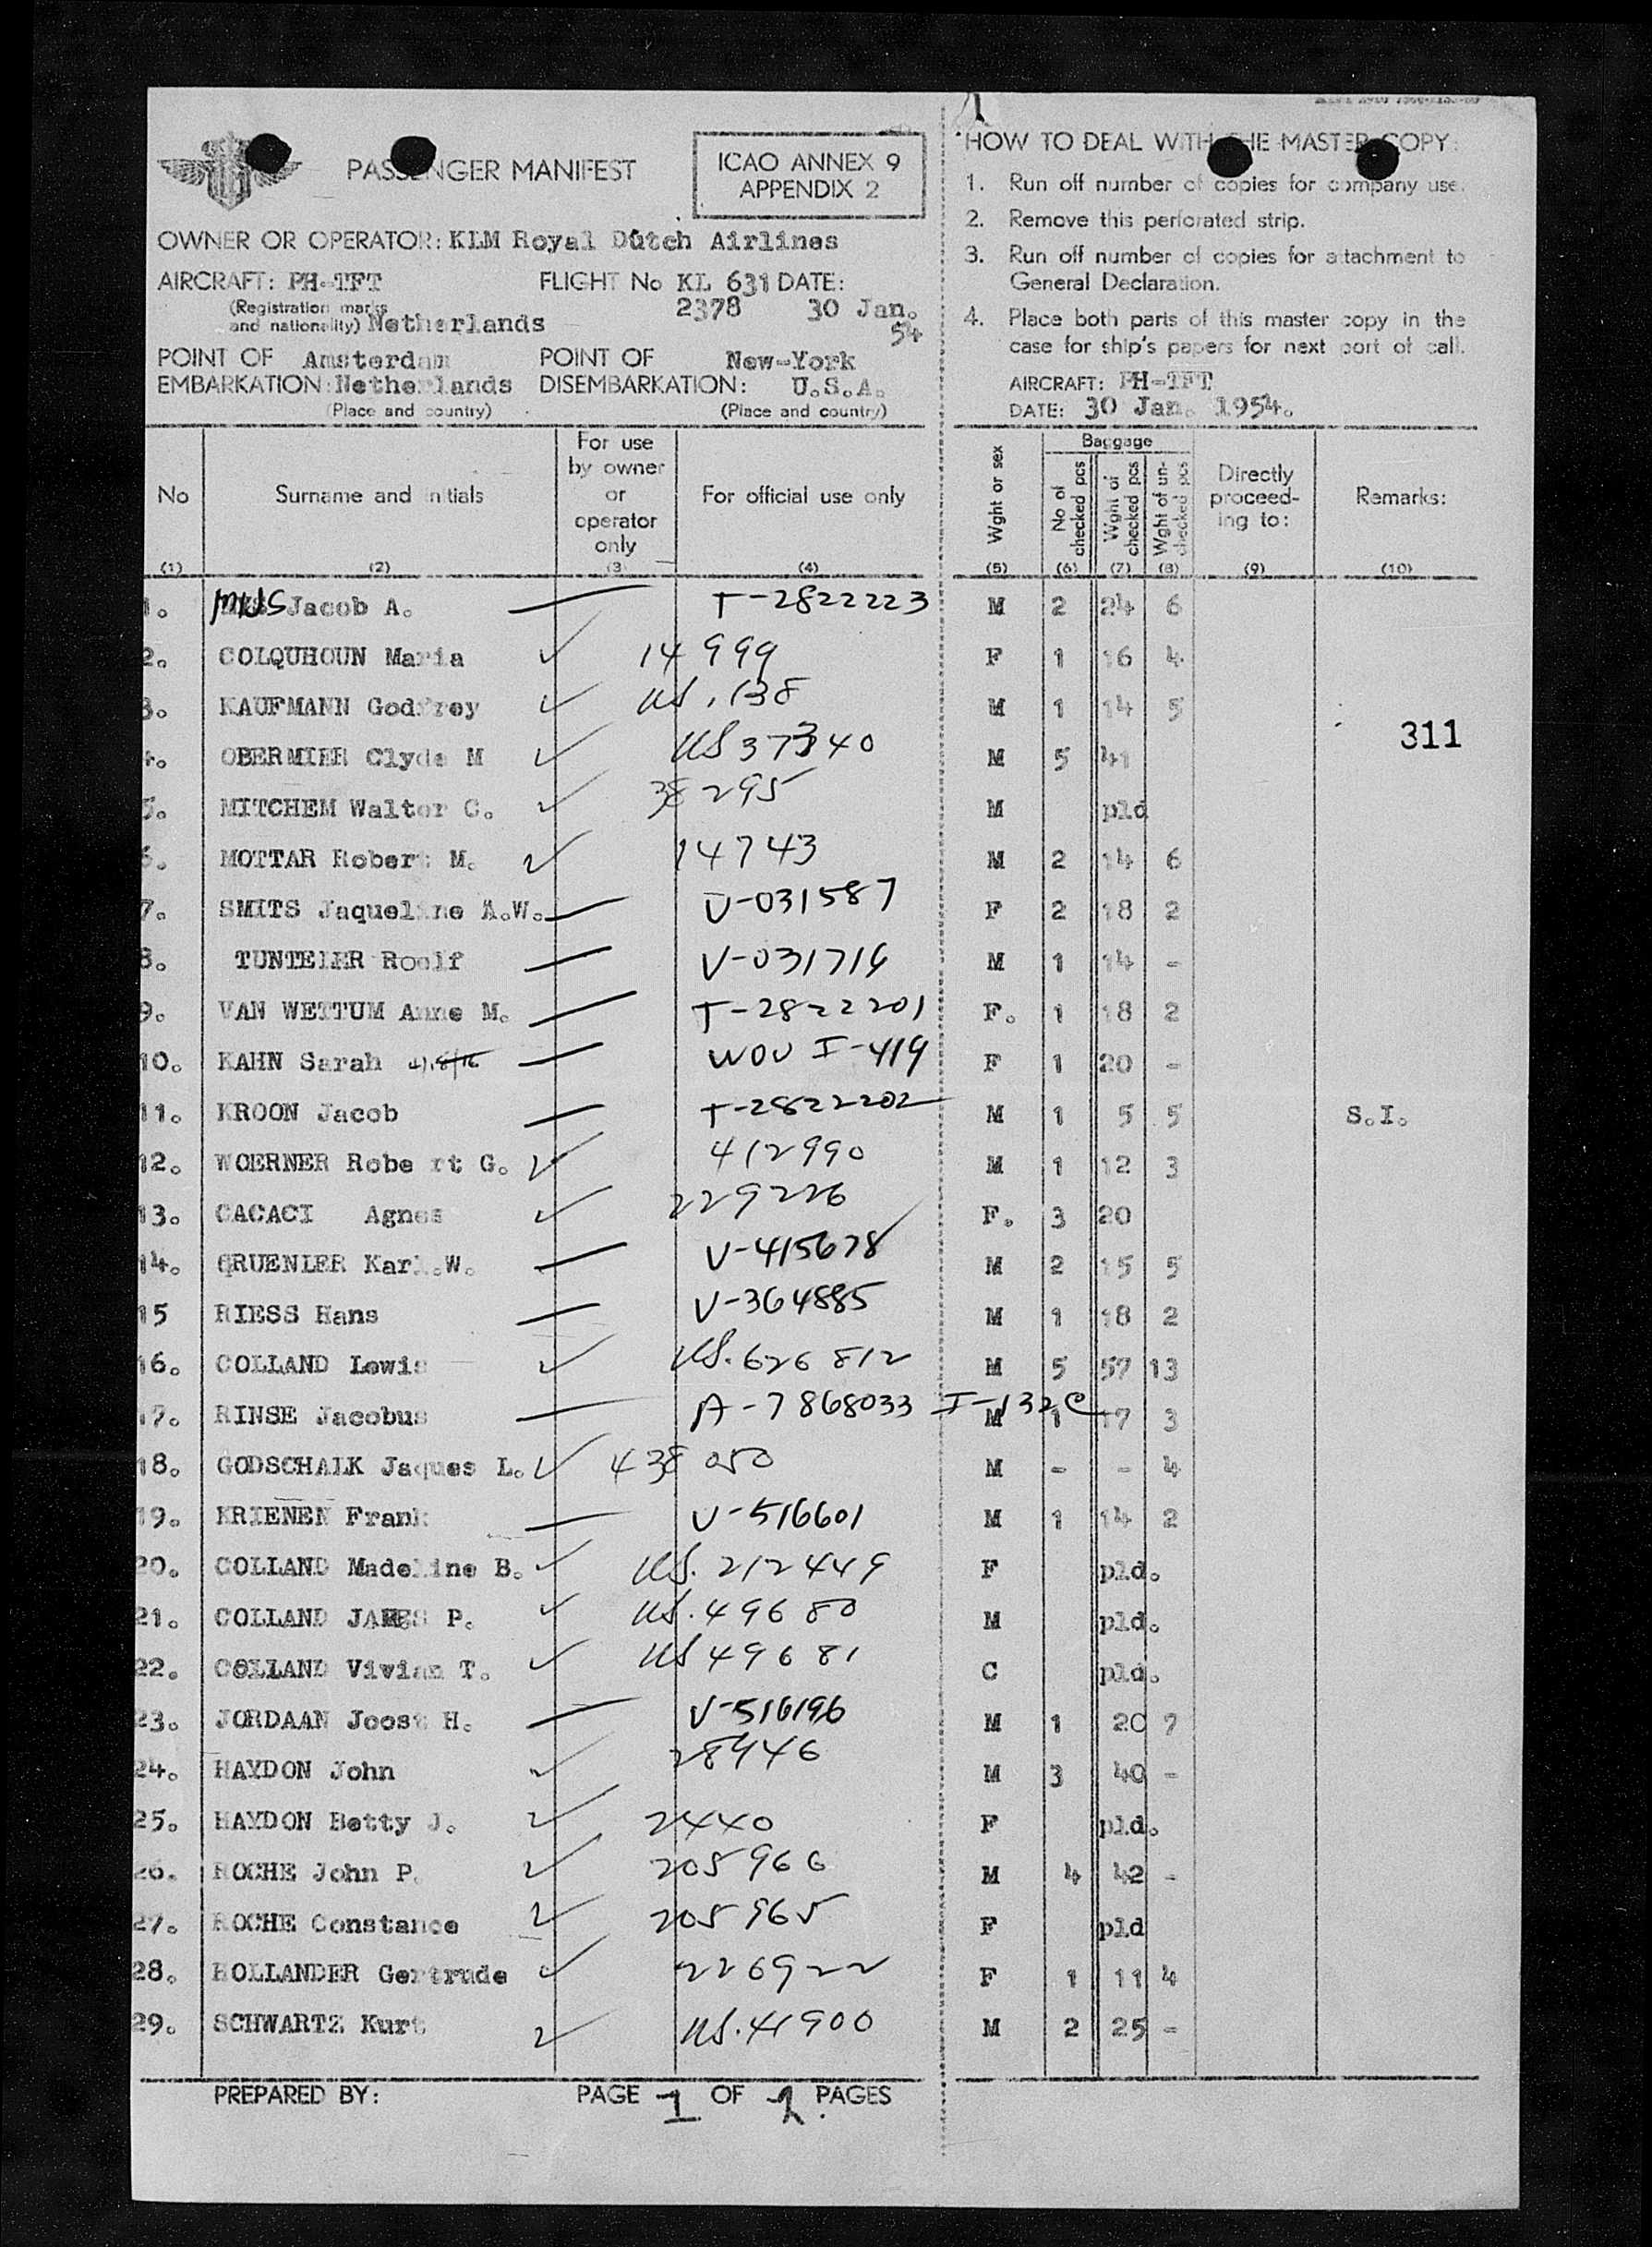 PASSENGER MANIFEST
ICAO ANNEX 9
APPENDIX 2
OWNER OR OPERATOR: KLM Royal Dutch Airlines
AIRCRAFT: PH-TFT FLIGHT No KL 631 DATE:
(Registration marks and nationality) Netherlands 2378 30 Jan. 54
POINT OF EMBARKATION: Amsterdam Netherlands POINT OF DISEMBARKATION: New-York U.S.A.
(Place and country) (Place and country)
HOW TO DEAL WITH THE MASTER COPY:
1. Run off number of copies for company use.
2. Remove this perforated strip.
3. Run off number of copies for attachment to
General Declaration.
4. Place both parts of this master copy in the
case for ship's papers for next port of call.
AIRCRAFT: PH-TFT
DATE: 30 Jan. 1954.
No Surname and initials For use by owner or operator only For official use only Wght or sex Baggage No of checked pcs Wght of checked pcs Wght of un-checked pcs Directly proceed-ing to: Remarks:
(1) (2) (3 (4) (5) (6) (7) (8) (9) (10)
1. MUS Jacob A. T-2822223 M 2 24 6
2. COLQUHOUN Maria 14999 F 1 16 4
3. KAUFMANN Godfrey US.138 M 1 14 5
311
4. OBERMIER Clyde M US 37340 M 5 41
5. MITCHEM Walter C. 38295 M pld
6. MOTTAR Robert M. 14743 M 2 14 6
7. SMITS Jaqueline A.W. V-031587 F 2 18 2
8. TUNTELER Roelf V-031716 M 1 14 -
9. VAN WETTUM Anne M. T-2822201 F. 1 18 2
10. KAHN Sarah WOV I-419 F 1 20 -
11. KROON Jacob T-2822202 M 1 5 5 S.I.
12. WOERNER Robe rt G. 412990 M 1 12 3
13. CACACI Agnes 229226 F. 3 20
14. GRUENLER Karl.W. V-415678 M 2 15 5
15 RIESS Hans V-364885 M 1 18 2
16. COLLAND Lewis US.626812 M 5 57 13
17. RINSE Jacobus A-7868033 I-132c M 1 17 3
18. GODSCHALK Jaques L. 438050 M - - 4
19. KRIENEN Frank V-516601 M 1 14 2
20. COLLAND Madeline B. US.212449 F pld.
21. COLLAND JAMES P. US.49680 M pld.
22. COLLAND Vivian T. US 49681 C pld.
23. JORDAAN Joost H. V-516196 M 1 20 7
24. HAYDON John 28946 M 3 40 -
25. HAYDON Betty J. 2440 F pld.
26. ROCHE John P. 205966 M 4 42 -
27. ROCHE Constance 205965 F pld
28. HOLLANDER Gertrude 226922 F 1 11 4
29. SCHWARTZ Kurt US.41900 M 2 25 -
PREPARED BY: PAGE 1 OF 2 PAGES